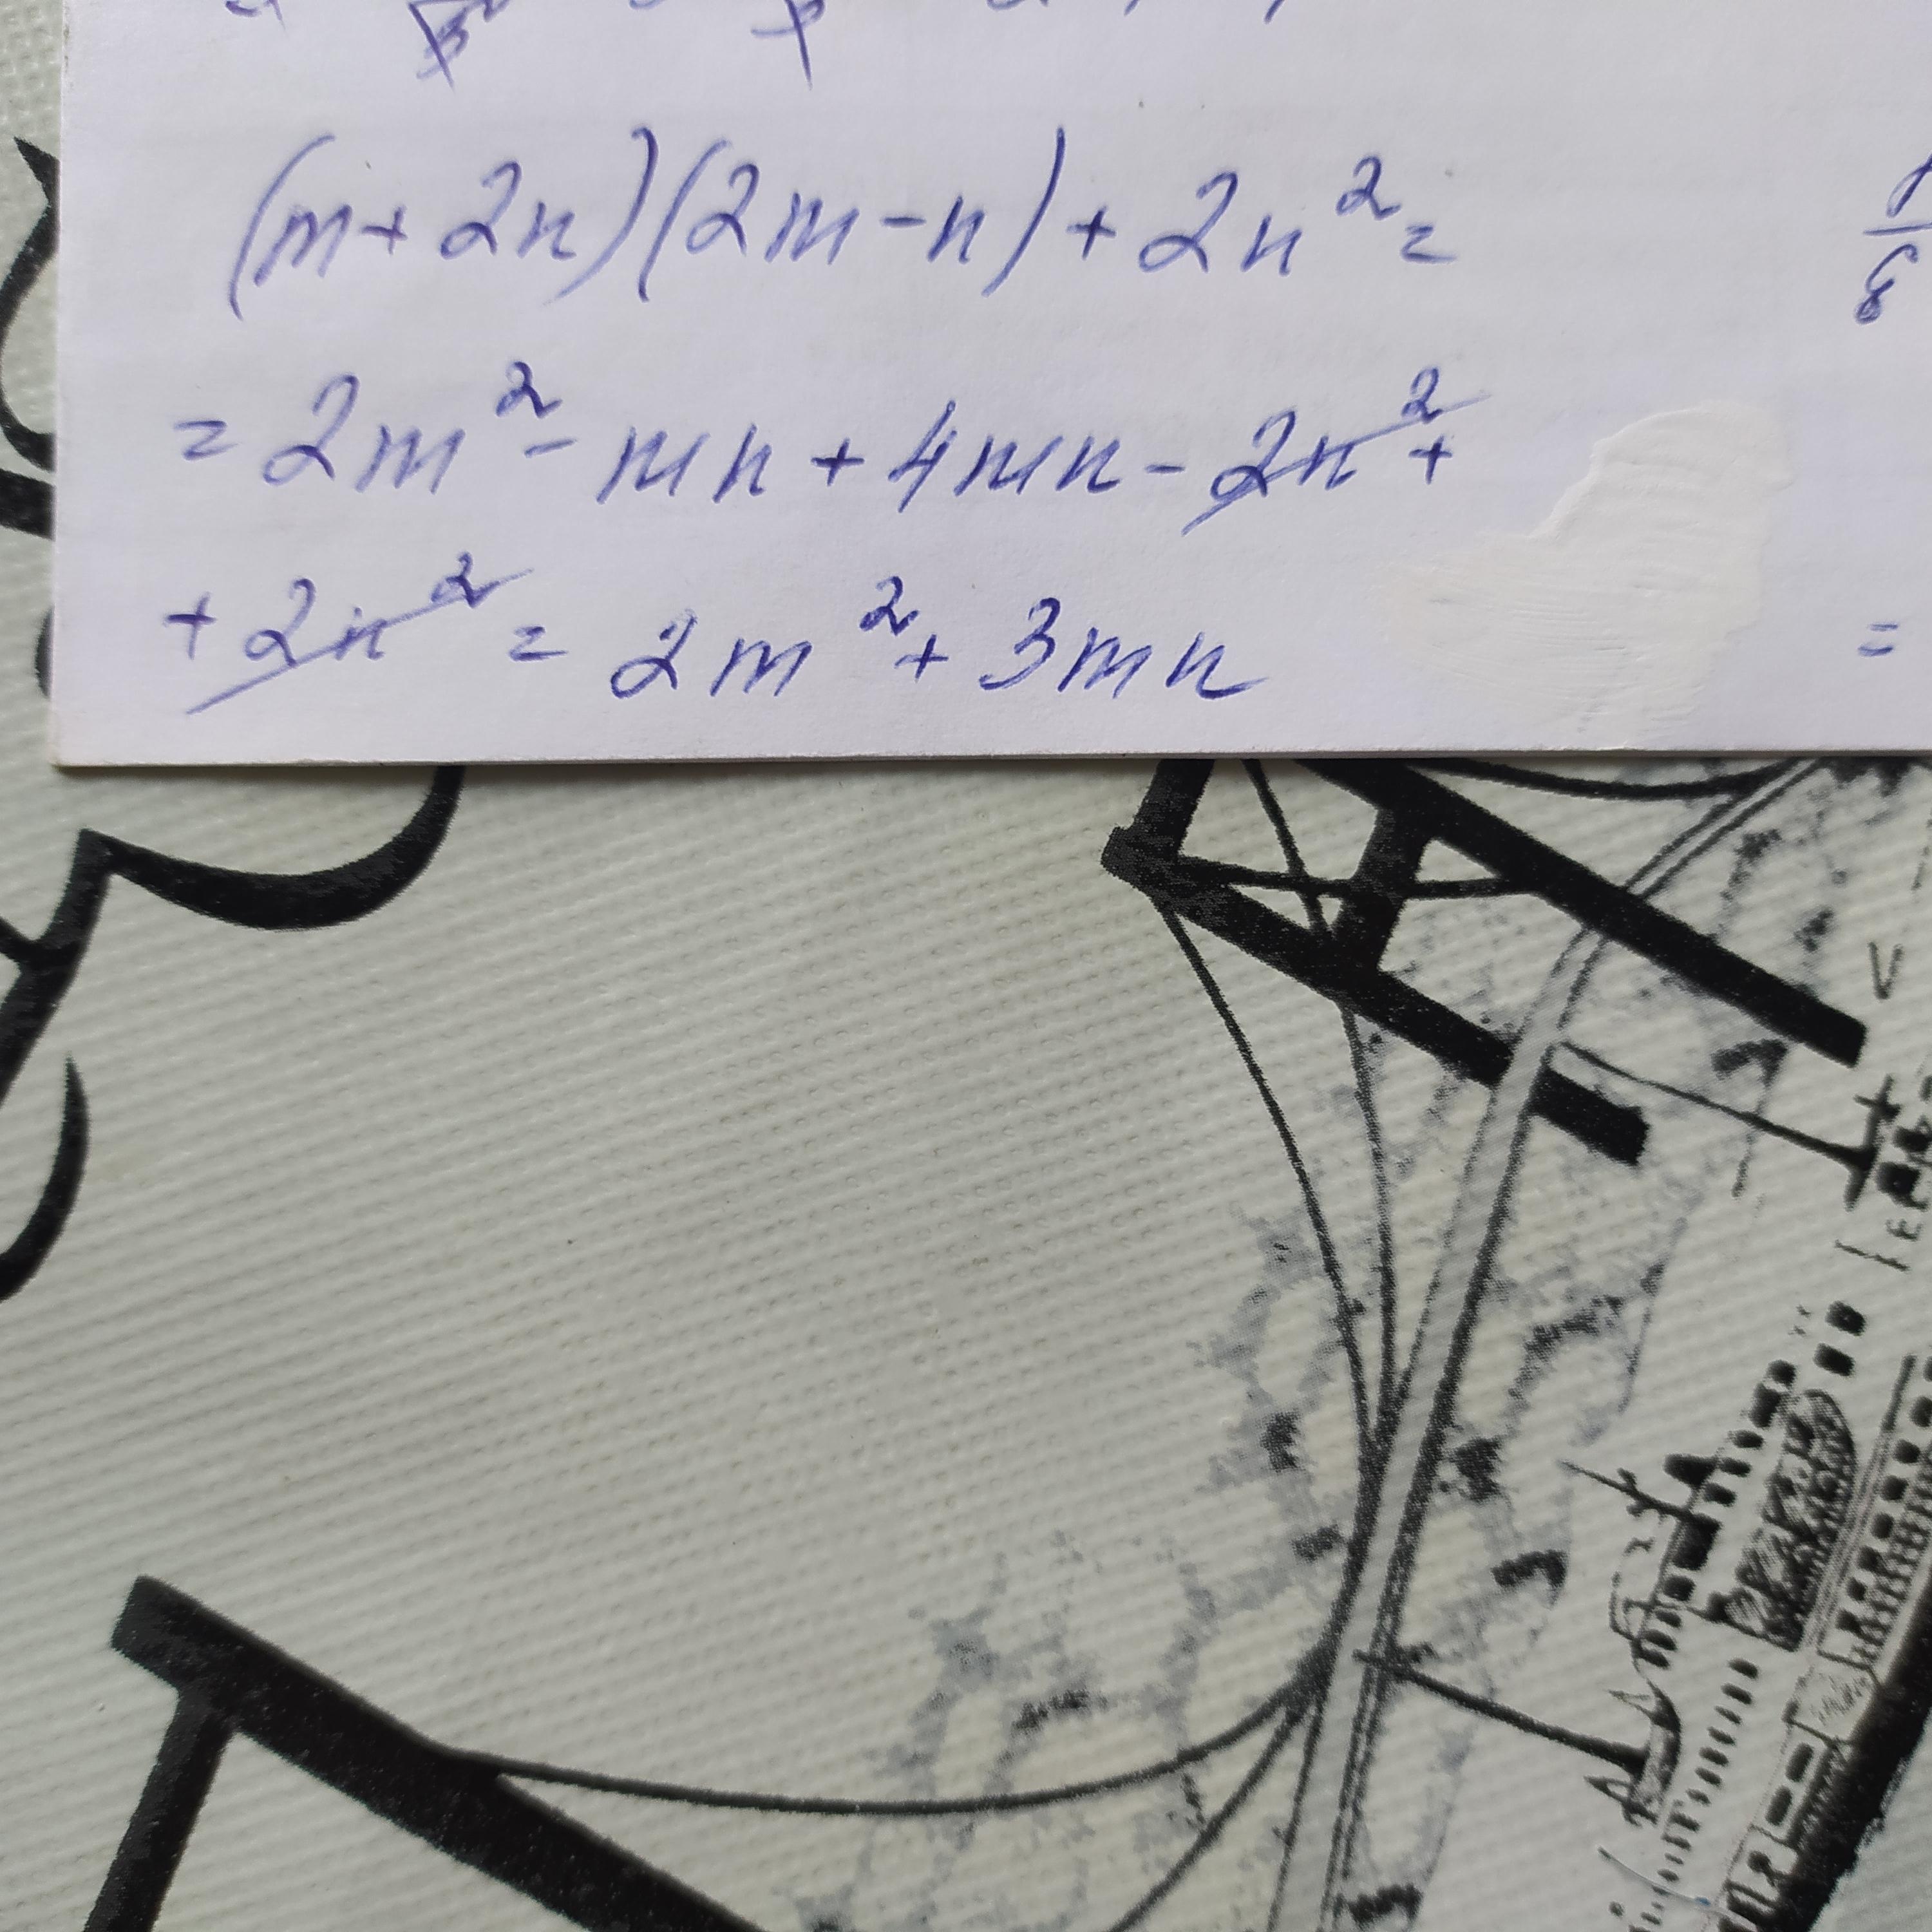 (m+2n)(2m-n)+2n²=
=2m²-mn+4mn-2n²+
+2n²=2m²+3mn
=